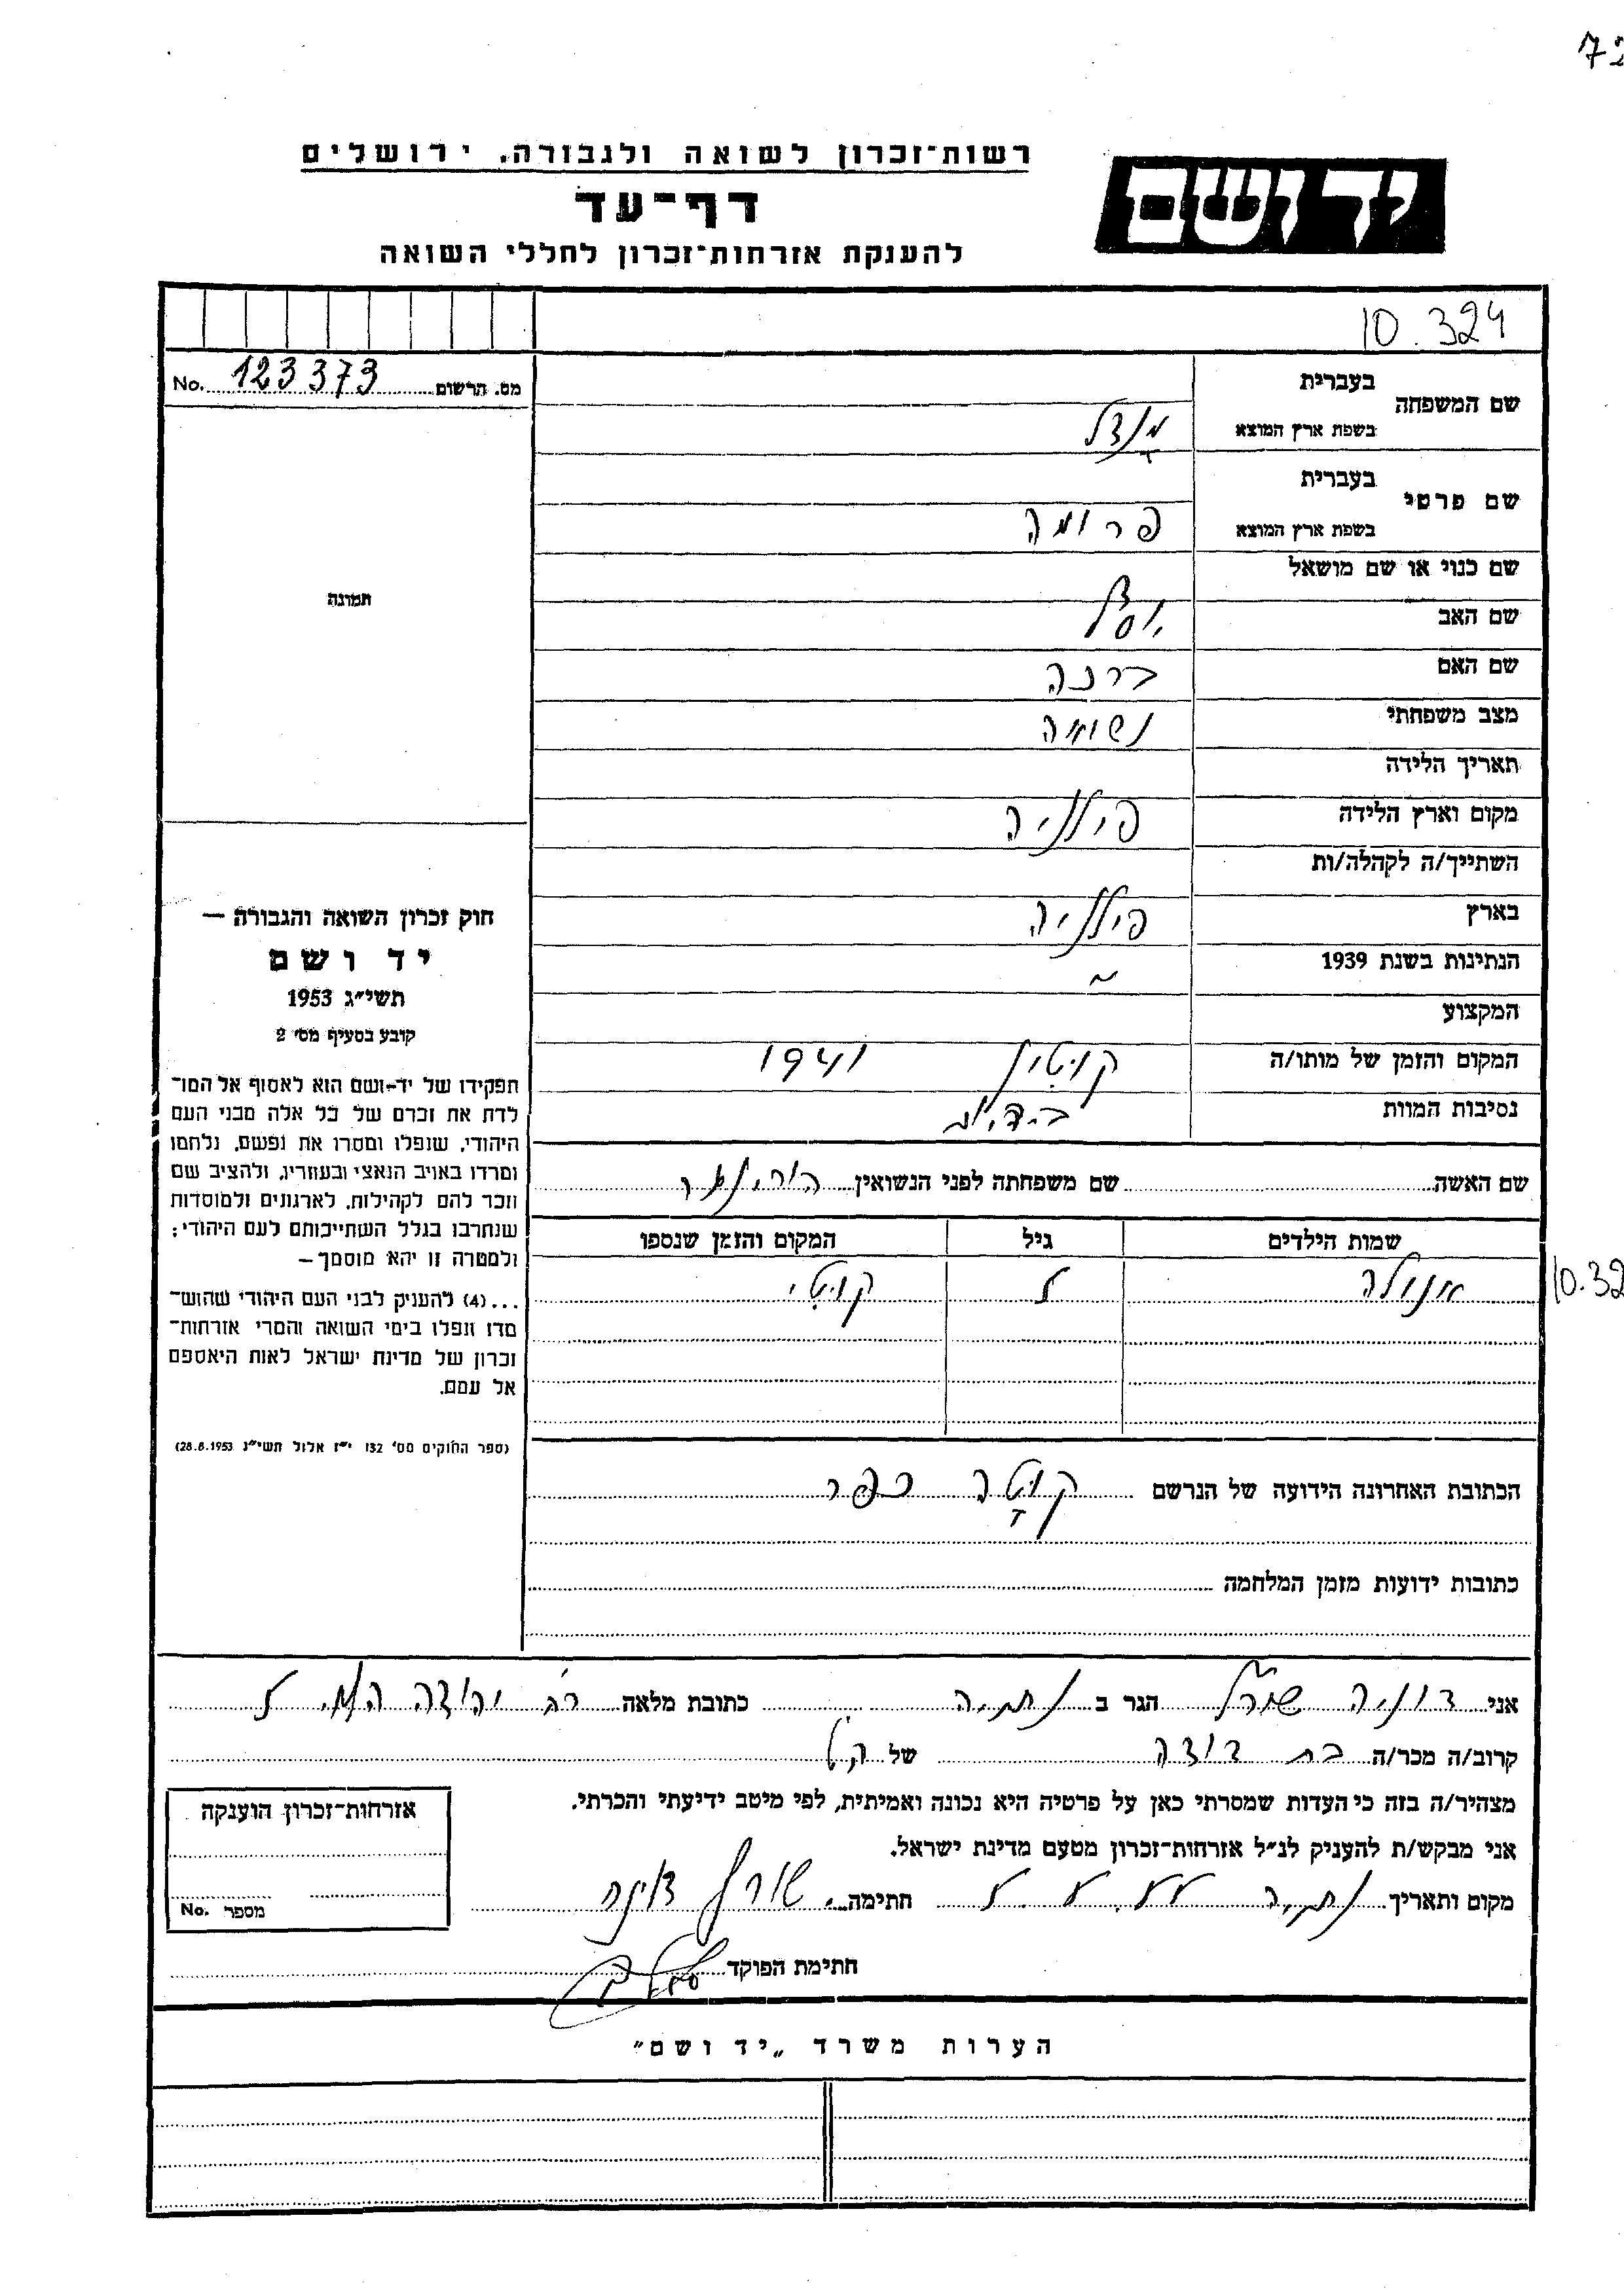 72
רשות־זכרון לשואה ולגבורה, ירושלים
יד ושם
דף־עד
להענקת אזרחות־זכרון לחללי השואה
10.324
No. 123373 מס. תרשום
שם המשפחה
בעברית
בשפת ארץ המוצא מנדל
שם פרטי
בעברית
בשפת ארץ המוצא פרומה
תמונה
שם כנוי או שם מושאל
שם האב יוסל
שם האם ברכה
מצב משפחתי נשואה
תאריך הלידה
מקום וארץ הלידה פולניה
השתייך/ה לקהלה/ות
בארץ פולניה
הנתינות בשנת 1939 ~
המקצוע
המקום והזמן של מותו/ה 1941
נסיבות המוות
שם האשה שם משפחתה לפני הנשואין
שמות הילדים גיל המקום והזמן שנספו
10.32
הכתובת האחרונה הידועה של הנרשם כפר
כתובות ידועות מזמן המלחמה
חוק זכרון השואה והגבורה —
יד ושם
תשי״ג 1953
קובע בסעיף מס׳ 2
תפקידו של יד-ושם הוא לאסוף אל המו־
לדת את זכרם של כל אלה מבני העם
היהודי, שנפלו ומסרו את נפשם, נלחמו
ומרדו באויב הנאצי ובעוזריו, ולהציב שם
וזכר להם לקהילות, לארגונים ולמוסדות
שנחרבו בגלל השתייכותם לעם היהודי;
ולמטרה זו יהא מוסמך —
...(4) להענין לבני העם היהודי שהוש־
מדו ונפלו בימי השואה והמרי אזרחות־
זכרון של מדינת ישראל לאות היאספם
אל עמם.
(ספר החוקים מס׳ 132 י״ז אלול תשי״ג 28.8.1953)
אני דוניה שורץ הגר ב נתניה כתובת מלאה יהודה הלוי 5
קרוב/ה מכר/ה בת דודה של
מצהיר/ה בזה כי העדות שמסרתי כאן על פרטיה היא נכונה ואמיתית, לפי מיטב ידיעתי והכרתי.
אני מבקש/ת להעניק לנ״ל אזרחות־זכרון מטעם מדינת ישראל.
מקום ותאריך נתניה חתימה שורץ
חתימת הפוקד
אזרחות־זכרון הוענקה
מספר No.
הערות משרד „יד ושם״